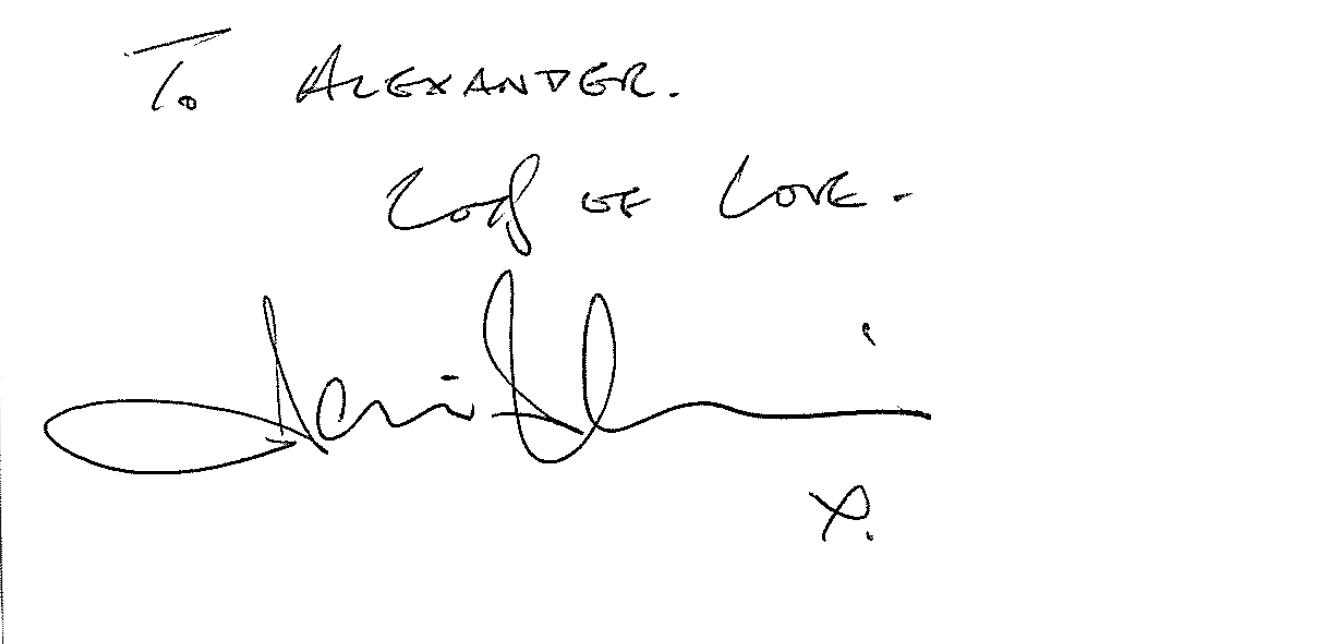 To ALEXANDER.
Lots OF LOVE.
x.